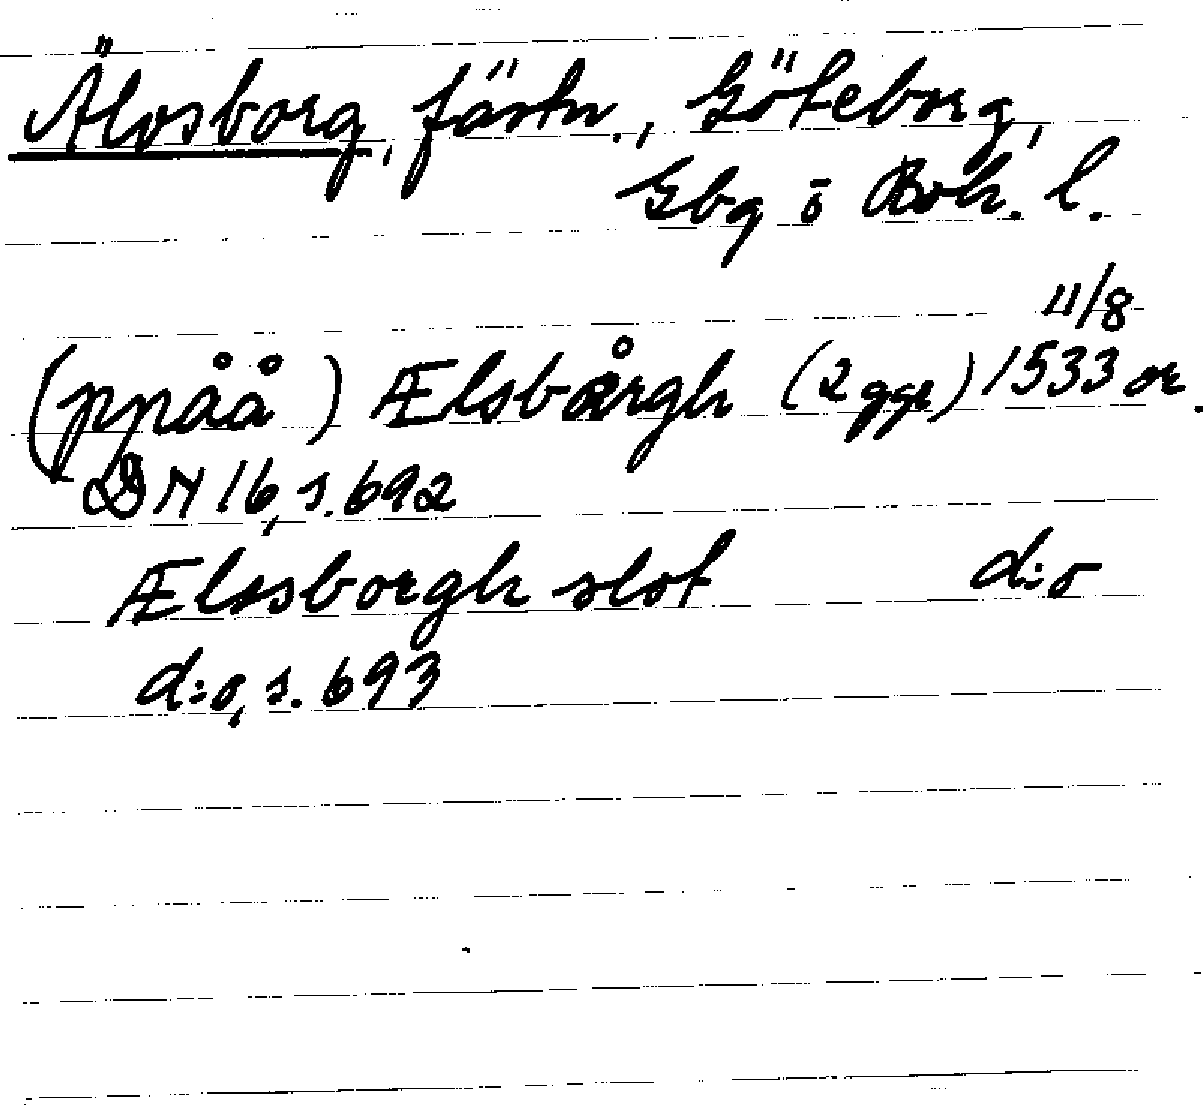 Älvsborg, fästn., Göteborg,
Gbg o Boh. l.
11/8
(ppåå) Ælsbårgh (2 ggr) 1533 or.
DN 16, s. 692
Ælssborgh slot d:o
d:o, s. 693